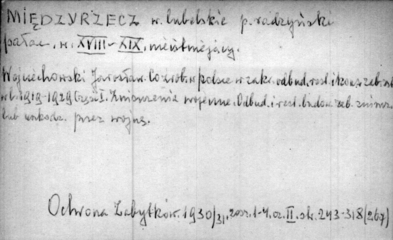 MIĘDZYRZECZ w. lubelskie p. radzyński
pałac, w. XVIII-XIX, nieistniejący.
Wojciechowski Jarosław. Co zrob. w Polsce w zakr. odbud. rest. i kons. zab. szt.
w l. 1919-1929 Część I. Zniszczenia wojenne. Odbud. i rest. budow. zab. zniszcz.
lub uszkodz. przez wojnę.
Ochrona Zabytków. 1930/31, zesz. 1-4, cz. II. sk. 243-318 (267)